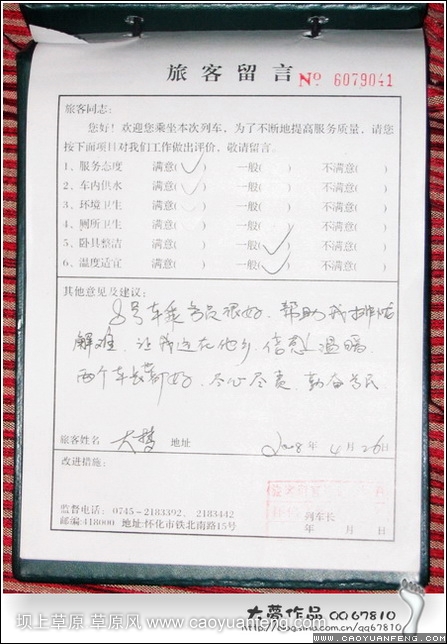 WWW.CAOYUANFENG.COM
旅客留言 No 6079041
旅客同志:
您好!欢迎您乘坐本次列车,为了不断地提高服务质量,请您
按下面项目对我们工作做出评价,敬请留言。
1、服务态度 满意(✓) 一般( ) 不满意( )
2、车内供水 满意( ) 一般( ) 不满意( )
3、环境卫生 满意( ) 一般( ) 不满意( )
4、厕所卫生 满意( ) 一般( ) 不满意( )
5、卧具整洁 满意( ) 一般(✓) 不满意( )
6、温度适宜 满意( ) 一般(✓) 不满意( )
其他意见及建议:
8号车乘务员很好、帮助我排忧
解难、让我远在他乡、倍感温暖、
两个车长都好、尽心尽责、勤奋为民
旅客姓名 大梦 地址 2008年4月26日
改进措施:
监督电话:0745-2183392、2183442
邮编:418000 地址:怀化市铁北南路15号
列车长
年 月 日
坝上草原 草原风 www.caoyuanfeng.com
大夢作品 QQ67810
http://blog.sina.com.cn/qq67810
WWW.CAOYUANFENG.COM